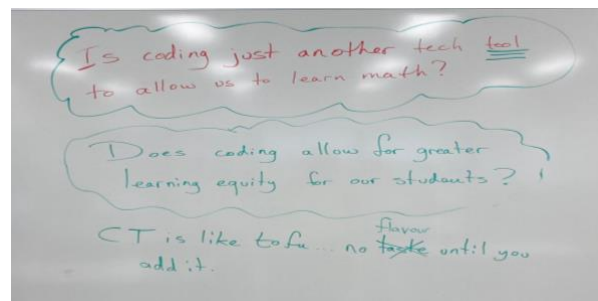 Is coding just another tech tool
to allow us to learn math?
Does coding allow for greater
learning equity for our students?
flavour
CT is like tofu... no taste until you
add it.